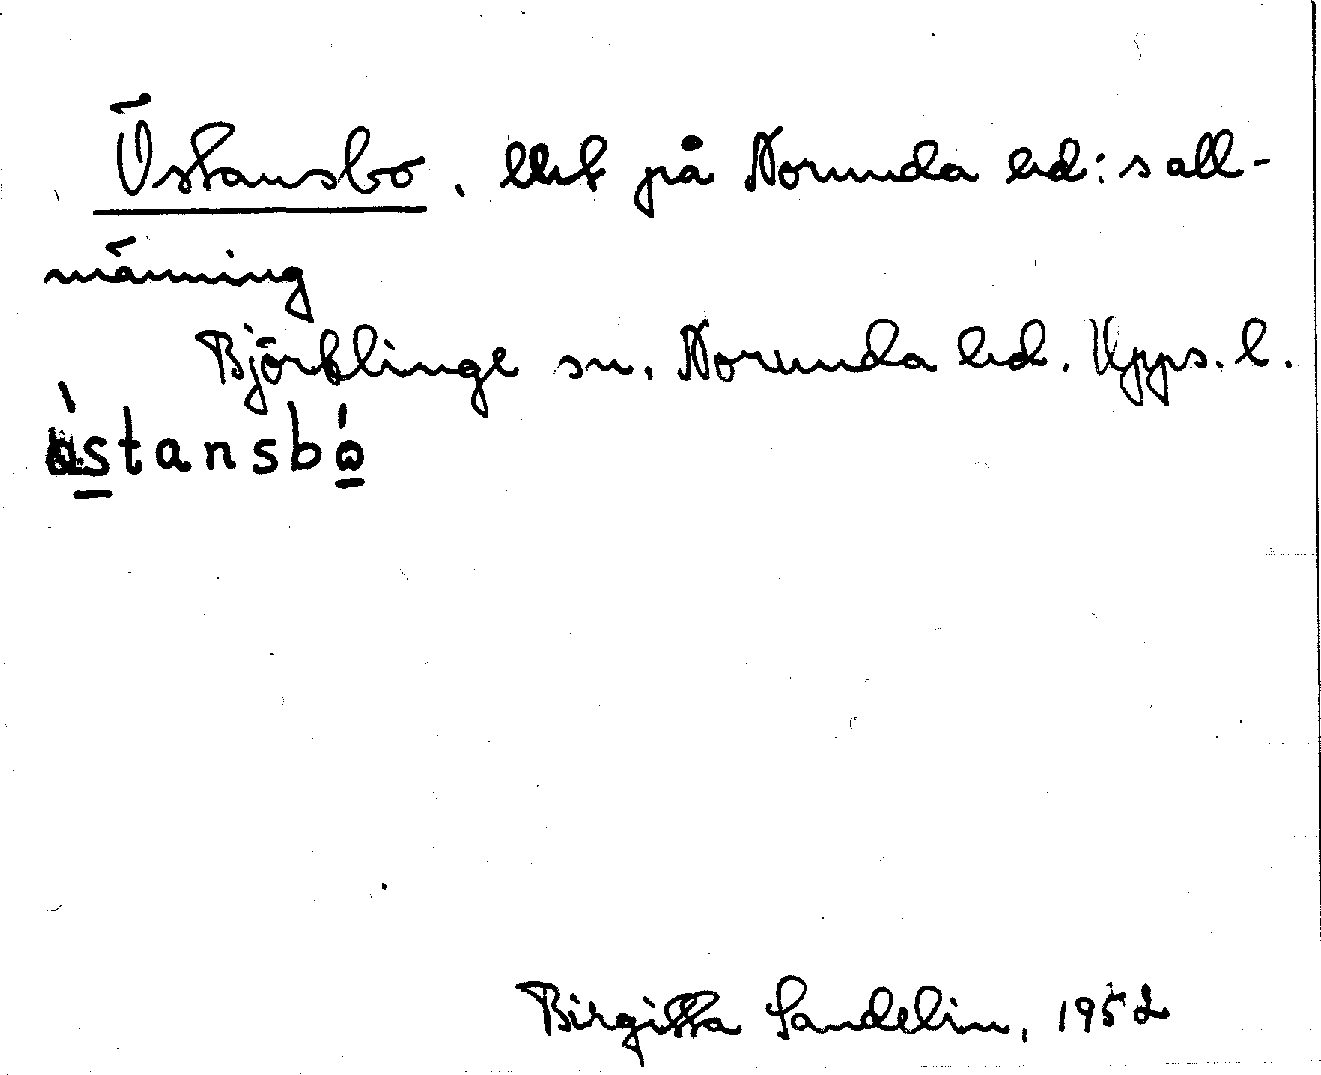 Östansbo, lht på Norunda hd:s all-
männing
Björklinge sn. Norunda hd. Upps. l.
stansbò
Birgitta Sandelin, 1952